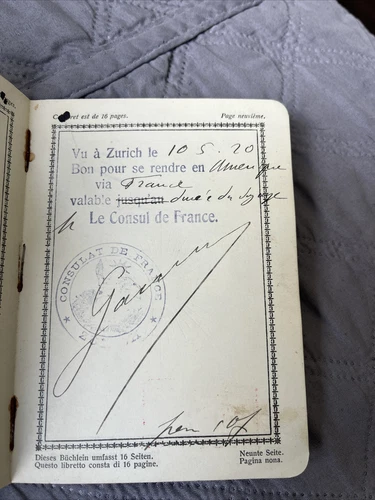 Ce livret est de 16 pages. Page neuvième.
Vu à Zurich le 10. 5. 20
Bon pour se rendre en Amerique
via France
valable jusqu'au durée du voyage
Le Consul de France.
CONSULAT DE FRANCE
Dieses Büchlein umfasst 16 Seiten. Neunte Seite.
Questo libretto consta di 16 pagine. Pagina nona.